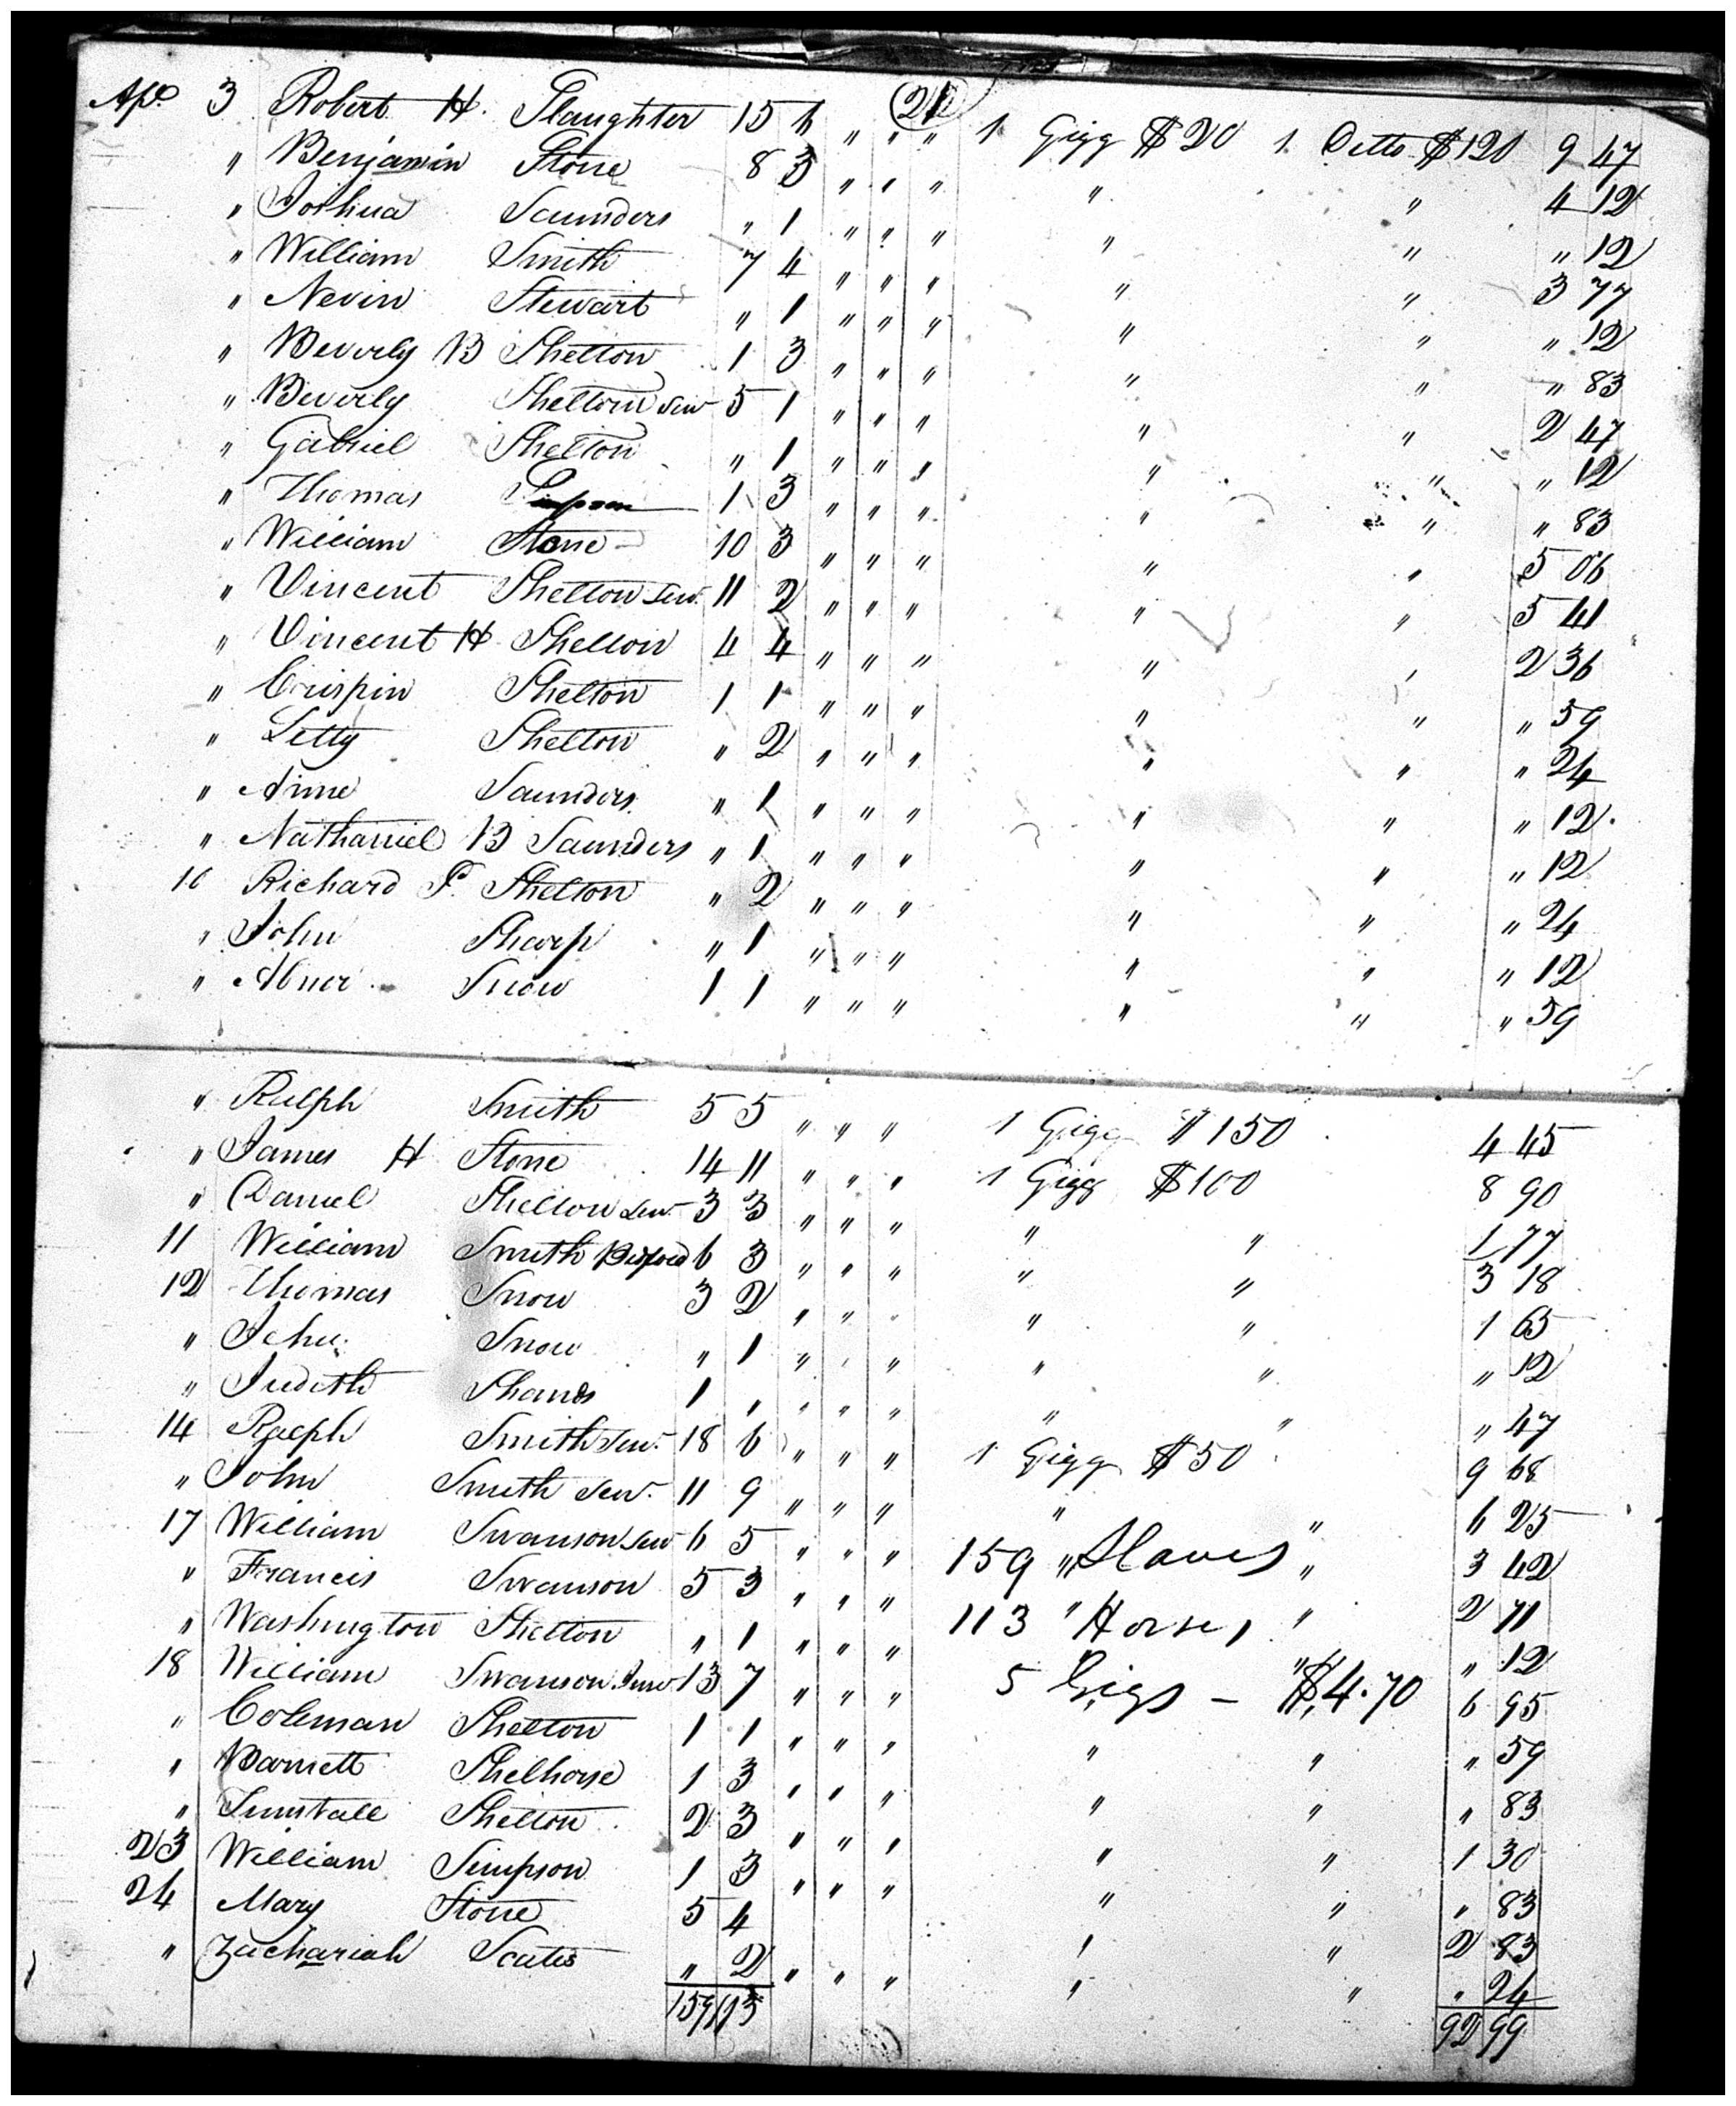 21
Apl 3 Robert H. Slaughter 15 6 " " " 1 Gigg $20 1 Ditto $120 9 47
" Benjamin Stone 8 3 " " " " " 4 12
" Joshua Saunders " 1 " " " " " " 12
" William Smith 7 4 " " " " " 3 77
" Nevin Stewart " 1 " " " " " " 12
" Beverly B Shelton 1 3 " " " " " " 83
" Beverly Shelton Sen 5 1 " " " " " 2 47
" Gabriel Shelton " 1 " " " " " " 12
" Thomas 1 3 " " " " " " 83
" William Stone 10 3 " " " " " 5 06
" Vincent Shelton Sen. 11 2 " " " " " 5 41
" Vincent H Shelton 4 4 " " " " " 2 36
" Crispin Shelton 1 1 " " " " " " 59
" Letty Shelton " 2 " " " " " " 24
" Anne Saunders " 1 " " " " " " 12
" Nathaniel B Saunders " 1 " " " " " " 12
10 Richard F. Shelton " 2 " " " " " " 24
" John Sharp " 1 " " " " " " 12
" Abner Snow 1 1 " " " " " " 59
" Ralph Smith 5 5 " " " 1 Gigg $150 4 45
" James H Stone 14 11 " " " 1 Gigg $100 8 90
" Daniel Shelton Sen. 3 3 " " " " " 1 77
11 William Smith 6 3 " " " " " 3 18
12 Thomas Snow 3 2 " " " " " 1 65
" John Snow " 1 " " " " " " 12
" Judith Shands 1 " " " " " " " 47
14 Ralph Smith Sen. 18 6 " " " 1 Gigg $50 9 68
" John Smith Sen. 11 9 " " " " " 6 25
17 William Swanson Sen 6 5 " " " 159 " Slaves " 3 42
" Francis Swanson 5 3 " " " 113 " Horses " 2 71
" Washington Shelton " 1 " " " " " 12
18 William Swanson Junr 13 7 " " " 5 Gigs - $4.70 6 95
" Coleman Shelton 1 1 " " " " " " 59
" Barnett Shelhorse 1 3 " " " " " " 83
" Tunstall Shelton 2 3 " " " " " 1 30
23 William Simpson 1 3 " " " " " " 83
24 Mary Stone 5 4 " " 2 83
" Zachariah Scates " 2 " " " " " " 24
159 113 92 99